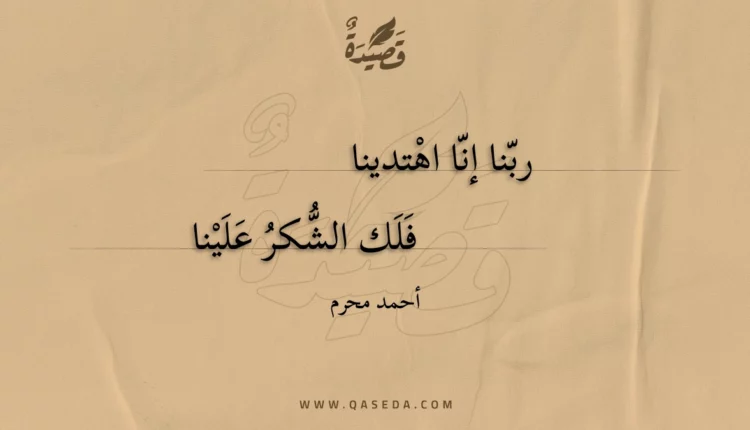 قَصِيدَةٌ
ربّنا إنّا اهْتدينا
فَلَك الشُّكرُ عَلَيْنا
أحمد محرم
WWW.QASEDA.COM